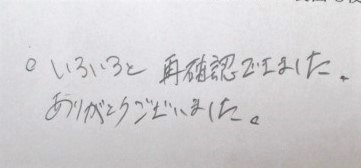 ○ いろいろと 再確認できました。
ありがとうございました。